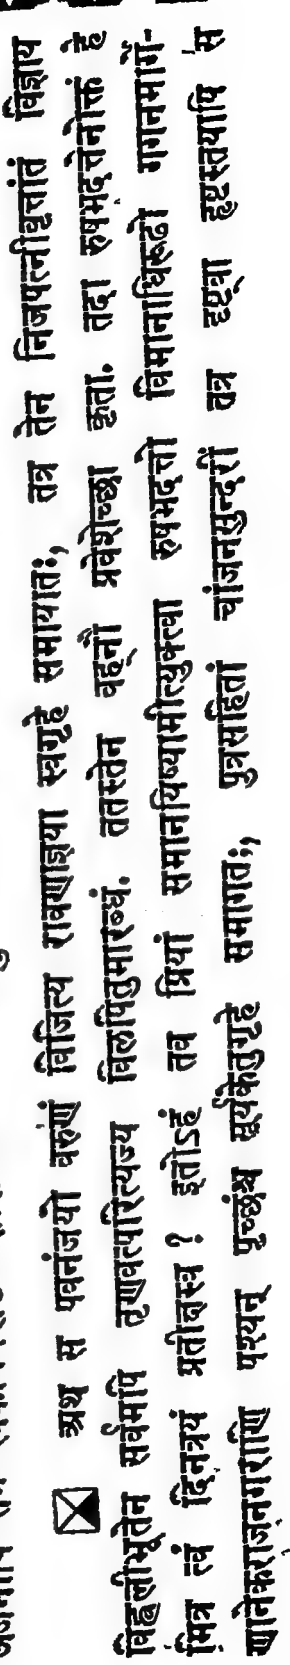 अथ स पवनंजयो वरुणं विजित्य रावणाज्ञया स्वगृहे समायातः, तत्र तेन निजपत्नीवृत्तांतं विज्ञाय
विह्वलीभूतेन सर्वमपि तृणवत्परित्यज्य विलपितुमारब्धं. ततस्तेन वह्नौ प्रवेशेच्छा कृता. तदा रुषभदत्तेनोक्तं हे
मित्र त्वं दिनत्रयं प्रतीक्षस्व ? इतोऽहं तव प्रियां समानयिष्यामीत्युक्त्वा रुषभदत्तो विमानाधिरूढो गगनमार्गे-
णानेकराजनगराणि पश्यन् पृच्छंश्च सूर्यकेतुगृहे समागतः;, पुत्रसहितां चांजनसुन्दरीं तत्र दृष्ट्वा हृष्टस्तयापि स